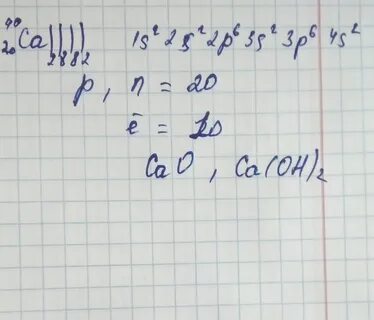 ⁴⁰₂₀Ca ) ) ) ) 2 8 8 2 1s² 2s² 2p⁶ 3s² 3p⁶ 4s²
p, n = 20
ē = 20
CaO, Ca(OH)₂